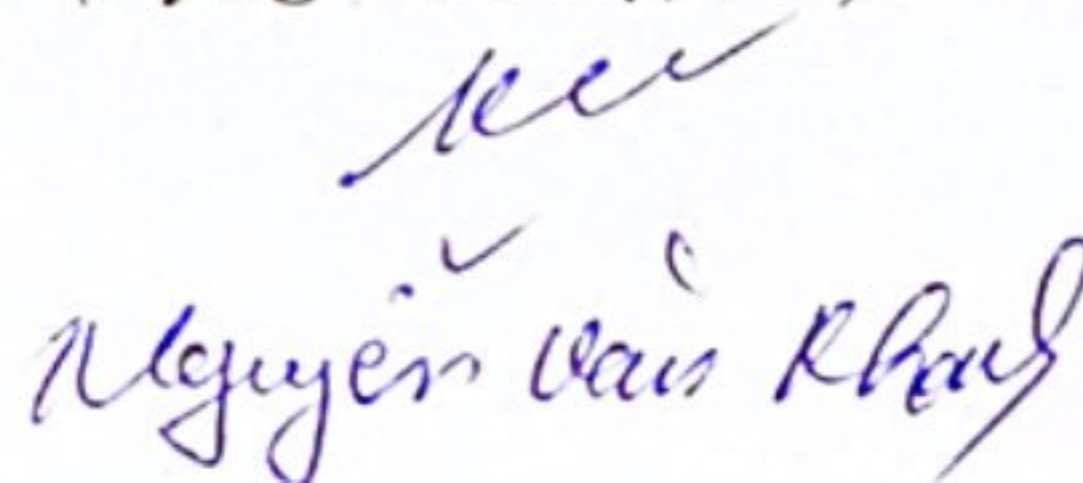 Nguyễn Văn Khanh